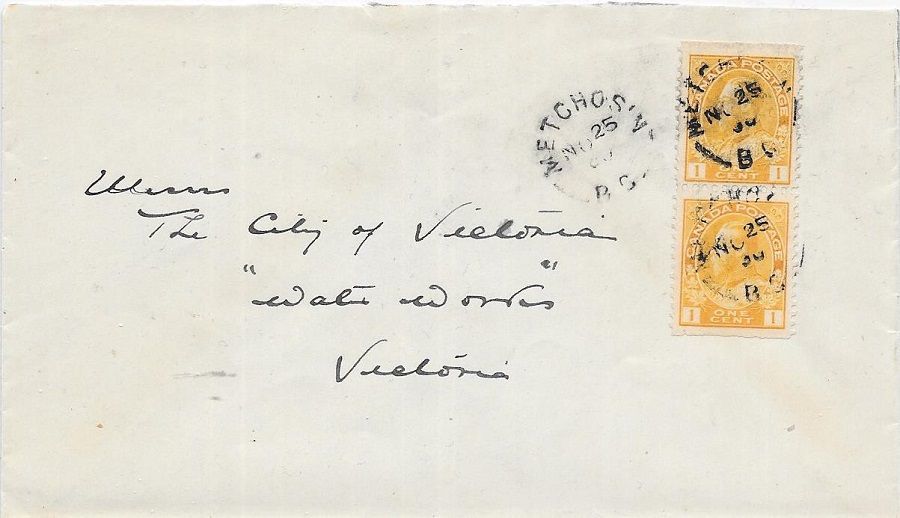 Messrs
The City of Victoria
" "
Water Works
Victoria
METCHOSIN
NO 25
B.C.
CANADA POSTAGE
METCHO
NO 25
30
B.C.
1 CENT 1
CANADA POSTAGE
NO 25
30
B.C.
1 ONE CENT 1